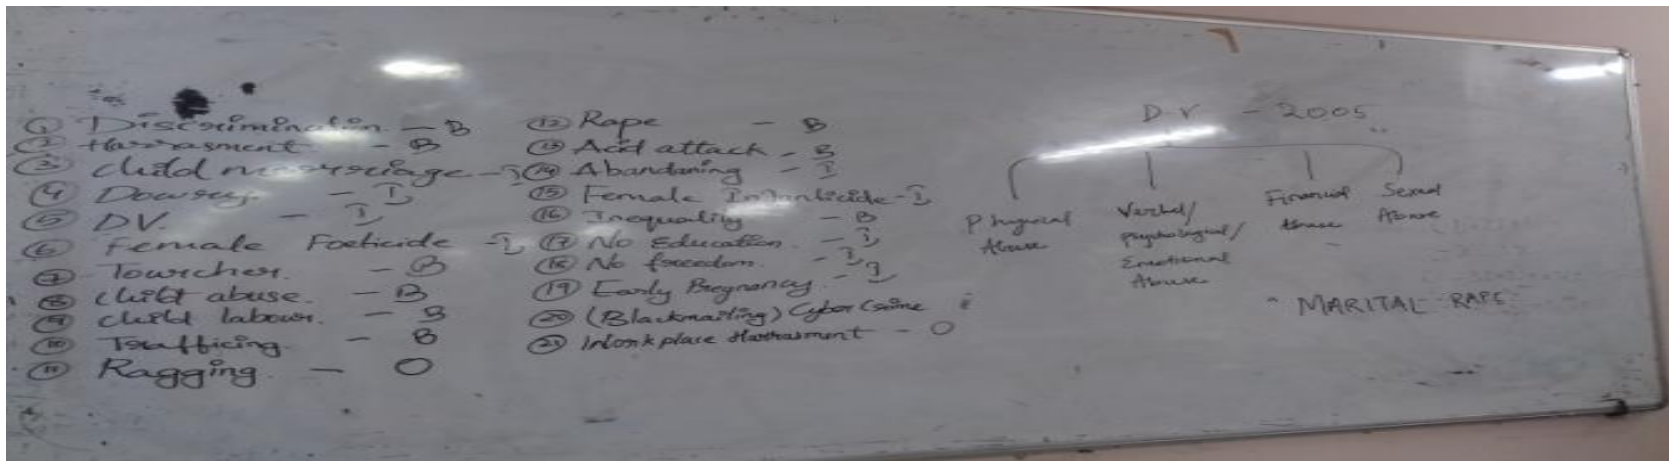 ① Discrimination - B
② Harrasment - B
③ child marriage - I
④ Dowry. - I
⑤ DV. - I
⑥ Female Foeticide - I
⑦ Tourcher. - B
⑧ child abuse. - B
⑨ child labour. - B
⑩ Trafficing. - B
⑪ Ragging. - O
⑫ Rape - B
⑬ Acid attack - B
⑭ Abandoning - I
⑮ Female Infanticide - I
⑯ Inequality - B
⑰ No Education. - I
⑱ No freedom. - I
⑲ Early Pregnancy - I
⑳ (Blackmailing) Cyber Crime
㉑ Workplace Harrasment - O
DV - 2005
Physical
Abuse
Verbal/
Psychological/
Emotional
Abuse
Financial
Abuse
Sexual
Abuse
" MARITAL RAPE